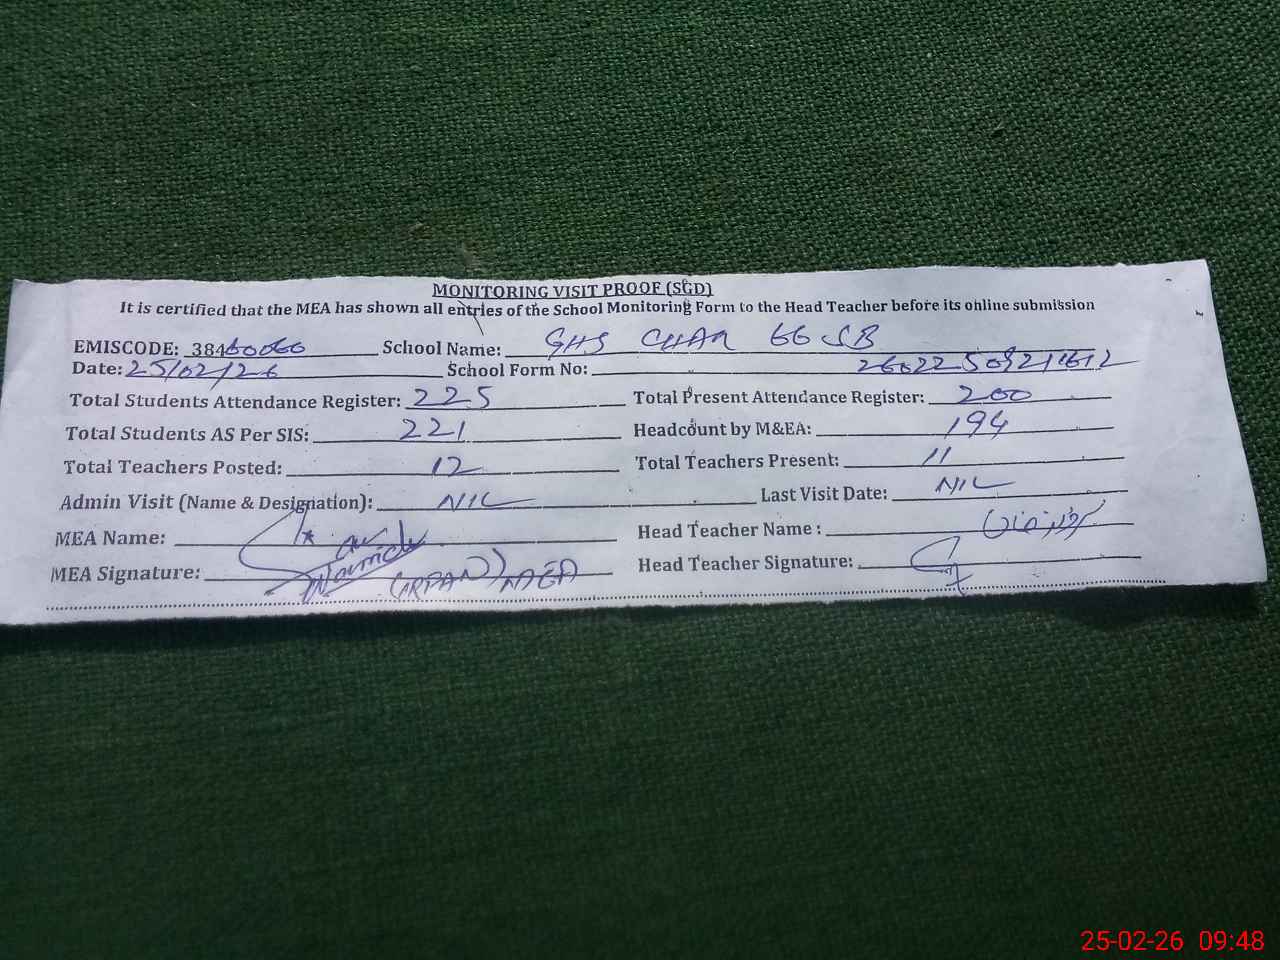 MONITORING VISIT PROOF (SGD)
It is certified that the MEA has shown all entries of the School Monitoring Form to the Head Teacher before its online submission
EMISCODE: 38460066 School Name: GHS CHAK 66 SB
Date: 25/02/26 School Form No:
Total Students Attendance Register: 225 Total Present Attendance Register: 200
Total Students AS Per SIS: 221 Headcount by M&EA: 194
Total Teachers Posted: 12 Total Teachers Present: 11
Admin Visit (Name & Designation): NIL Last Visit Date: NIL
MEA Name: Head Teacher Name :
MEA Signature: MEA Head Teacher Signature:
25-02-26 09:48